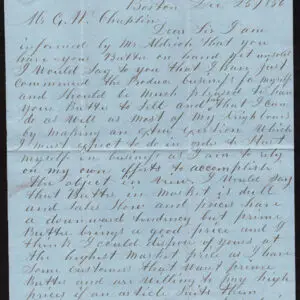 Boston Dec 25/186
Mr G. W. Chaplin
Dear Sir I am
informed by Mr Aldrich that you
have your Butter on hand yet unsold
I Would Say to you that I have just
Commenced the Produce business for myself
and Should be much pleased to have
your Butter to Sell and that I Can
do as Well as most of my neighbours
by making an extra exertion Which
I must expect to do in order to Start
myself in business as I am to rely
on my own efforts to accomplish
the object in view. I Would Say
that Butter in market is dull
and Sales Slow and prices have
a downward tendency but prime
Butter brings a good price and I
think I could dispose of yours at
the highest market price as I have
Some Customers that Want prime
Butter and are Willing to pay high
prices if an article Suits them